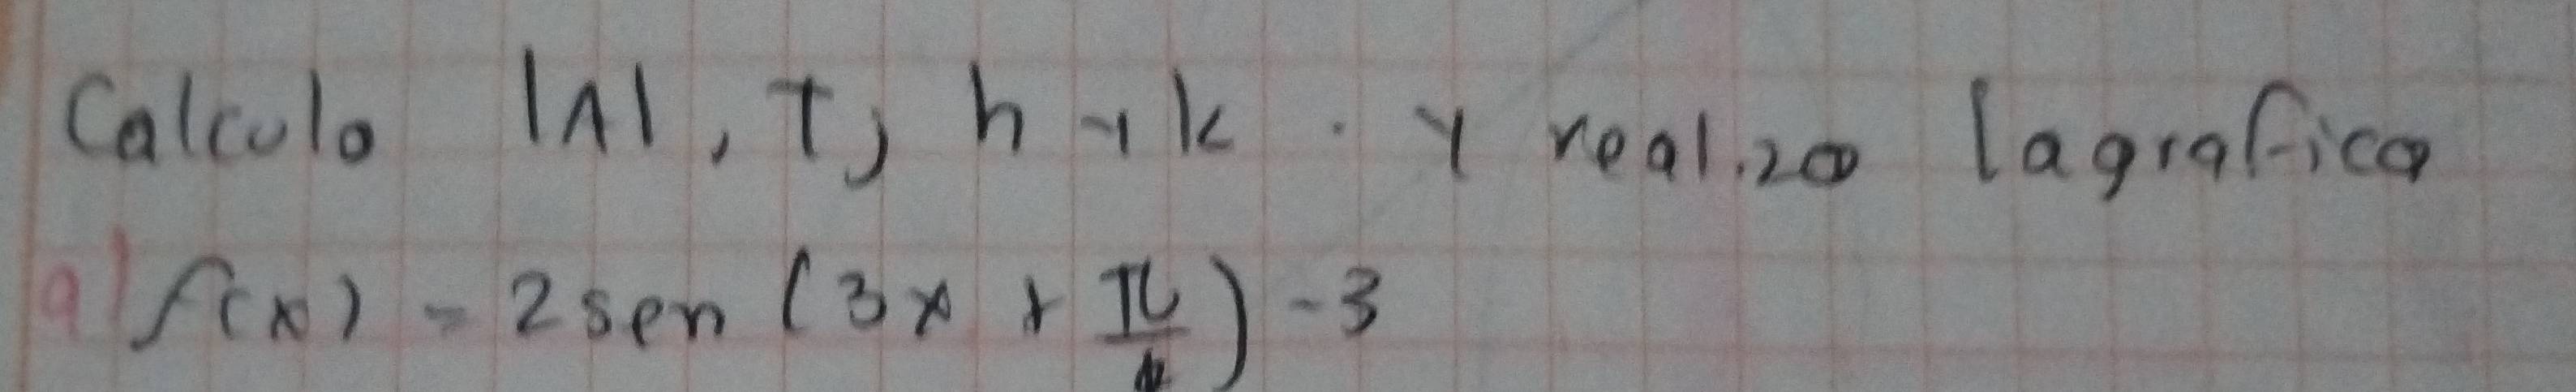 Calculo |A|, T, h y k. Y realizo la grafica
a) f(x) = 2 sen (3x + π/4) - 3